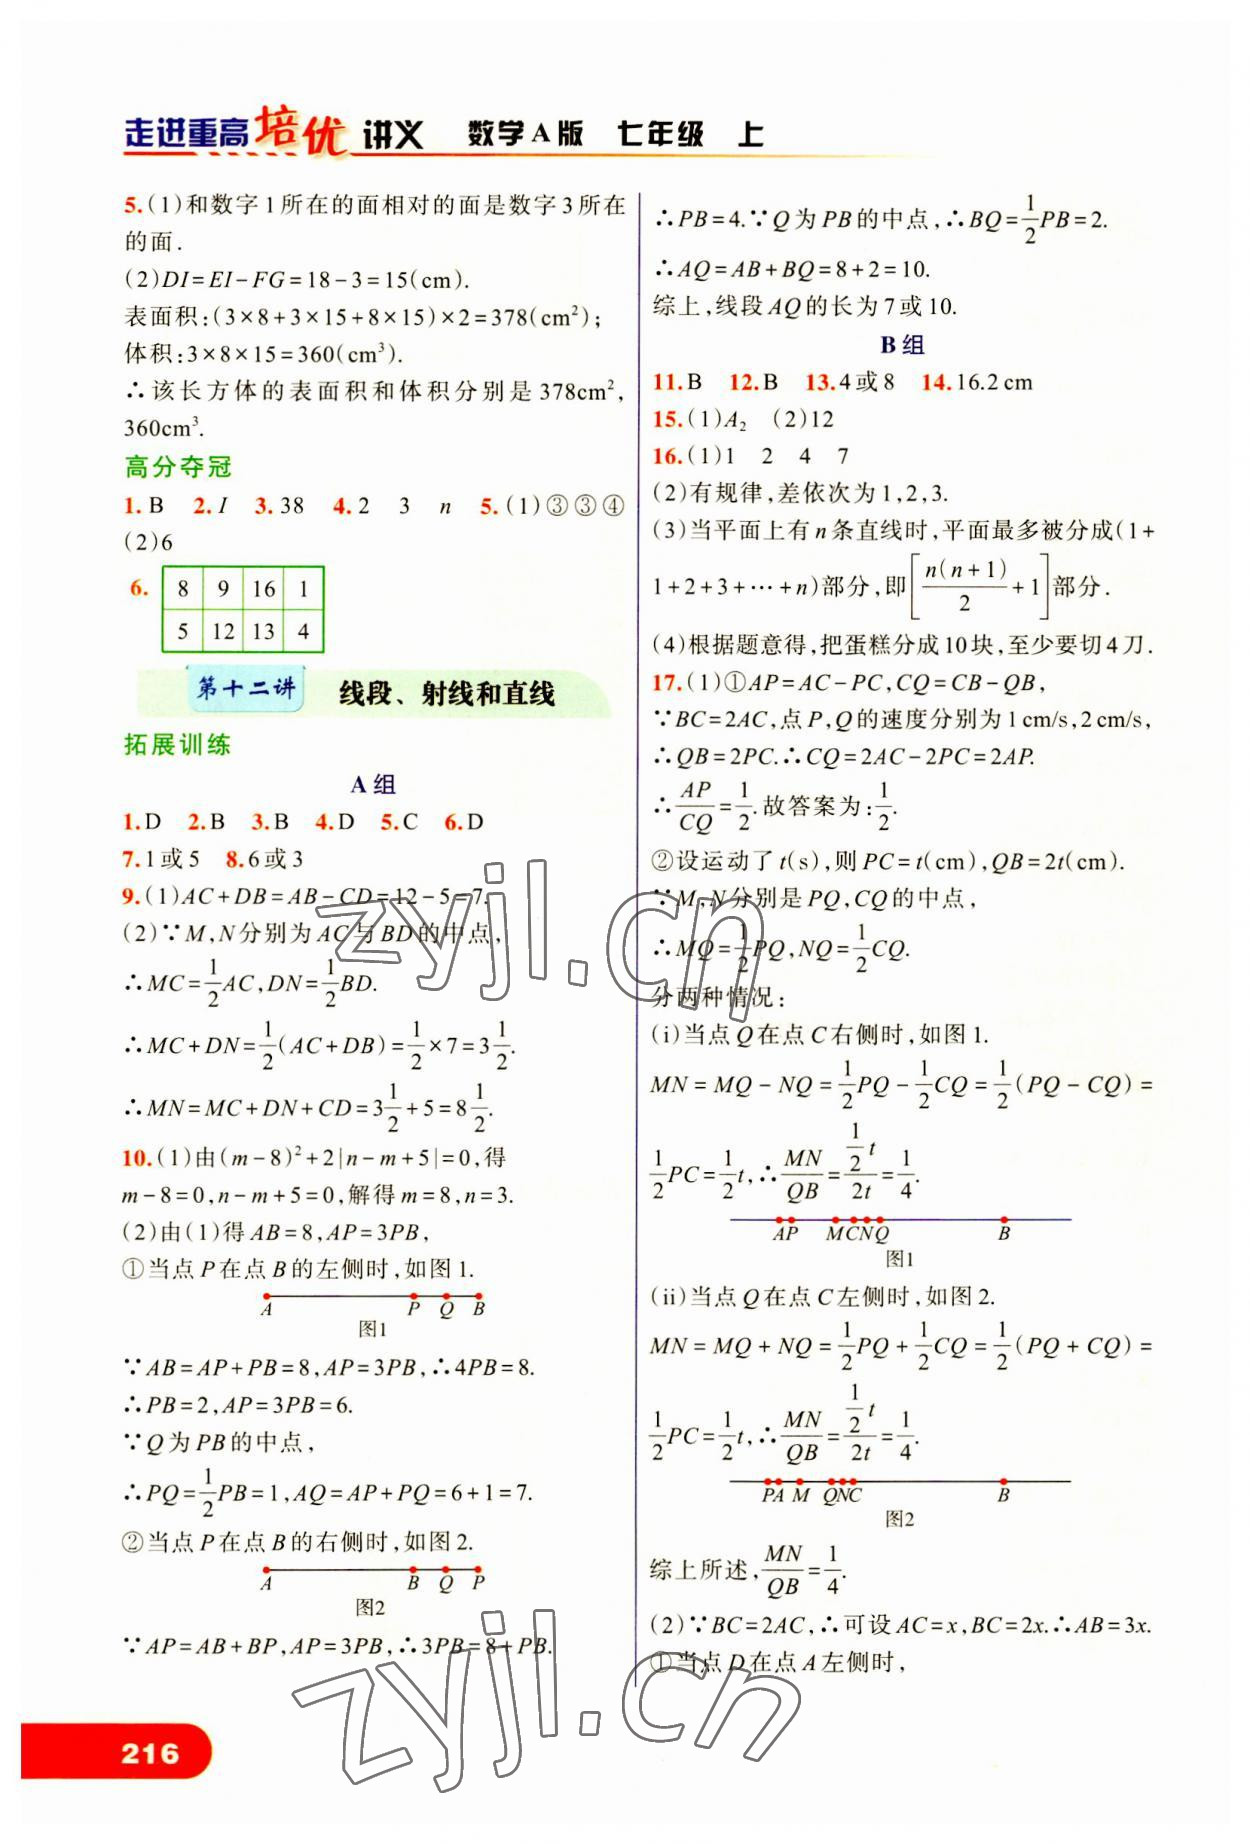 走进重高培优讲义 数学A版 七年级 上
5.(1)和数字1所在的面相对的面是数字3所在
的面.
(2)DI=EI-FG=18-3=15(cm).
表面积:(3×8+3×15+8×15)×2=378(cm²);
体积:3×8×15=360(cm³).
∴该长方体的表面积和体积分别是378cm²,
360cm³.
高分夺冠
1.B 2.I 3.38 4.2 3 n 5.(1)③③④
(2)6
6. 8 9 16 1
5 12 13 4
第十二讲 线段、射线和直线
拓展训练
A组
1.D 2.B 3.B 4.D 5.C 6.D
7.1或5 8.6或3
9.(1)AC+DB=AB-CD=12-5=7.
(2)∵M,N分别为AC与BD的中点,
∴MC=1/2AC,DN=1/2BD.
∴MC+DN=1/2(AC+DB)=1/2×7=3 1/2.
∴MN=MC+DN+CD=3 1/2+5=8 1/2.
10.(1)由(m-8)²+2|n-m+5|=0,得
m-8=0,n-m+5=0,解得m=8,n=3.
(2)由(1)得AB=8,AP=3PB,
①当点P在点B的左侧时,如图1.
A P Q B
图1
∵AB=AP+PB=8,AP=3PB,∴4PB=8.
∴PB=2,AP=3PB=6.
∵Q为PB的中点,
∴PQ=1/2PB=1,AQ=AP+PQ=6+1=7.
②当点P在点B的右侧时,如图2.
A B Q P
图2
∵AP=AB+BP,AP=3PB,∴3PB=8+PB.
∴PB=4.∵Q为PB的中点,∴BQ=1/2PB=2.
∴AQ=AB+BQ=8+2=10.
综上,线段AQ的长为7或10.
B组
11.B 12.B 13.4或8 14.16.2cm
15.(1)A₂ (2)12
16.(1)1 2 4 7
(2)有规律,差依次为1,2,3.
(3)当平面上有n条直线时,平面最多被分成(1+
1+2+3+…+n)部分,即[n(n+1)/2+1]部分.
(4)根据题意得,把蛋糕分成10块,至少要切4刀.
17.(1)①AP=AC-PC,CQ=CB-QB,
∵BC=2AC,点P,Q的速度分别为1cm/s,2cm/s,
∴QB=2PC.∴CQ=2AC-2PC=2AP.
∴AP/CQ=1/2.故答案为:1/2.
②设运动了t(s),则PC=t(cm),QB=2t(cm).
∵M,N分别是PQ,CQ的中点,
∴MQ=1/2PQ,NQ=1/2CQ.
分两种情况:
(i)当点Q在点C右侧时,如图1.
MN=MQ-NQ=1/2PQ-1/2CQ=1/2(PQ-CQ)=
1/2PC=1/2t,∴MN/QB=1/2t/2t=1/4.
AP MCNQ B
图1
(ii)当点Q在点C左侧时,如图2.
MN=MQ+NQ=1/2PQ+1/2CQ=1/2(PQ+CQ)=
1/2PC=1/2t,∴MN/QB=1/2t/2t=1/4.
PA M QNC B
图2
综上所述,MN/QB=1/4.
(2)∵BC=2AC,∴可设AC=x,BC=2x.∴AB=3x.
①当点D在点A左侧时,
216
zyjl.cn
zyjl.cn